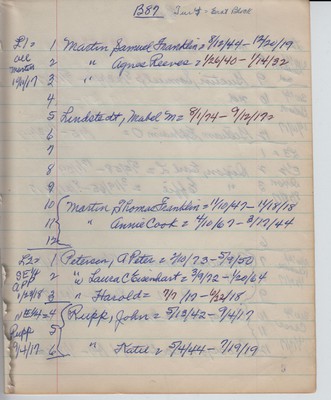 B87 Surf - East Block
L1= 1 Martin Samuel Franklin = 8/12/44 - 12/20/19
all 2 " Agnes Reeves = 1/26/40 - 1/14/32
Martin 3 "
12/1/17 4
5 Lindstedt, Mabel M = 8/1/74 - 9/12/17
6
7
8
9
10 Martin, Thomas Franklin = 1/10/47 - 11/18/18
11 " Annie Cook = 4/10/67 - 3/17/44
12
L2= 1 Petersen, A Peter = 2/10/73 - 5/9/50
SE1/4 2 " Laura C Eisenhart = 3/9/72 - 1/20/64
APP
1/29/18 3 " Harold = 7/7/17 - 6/22/18
N E1/4 = 4 Rupp, John = 5/13/42 - 9/4/17
Rupp 5
9/4/17 6 " Katie = 5/4/44 - 7/19/19